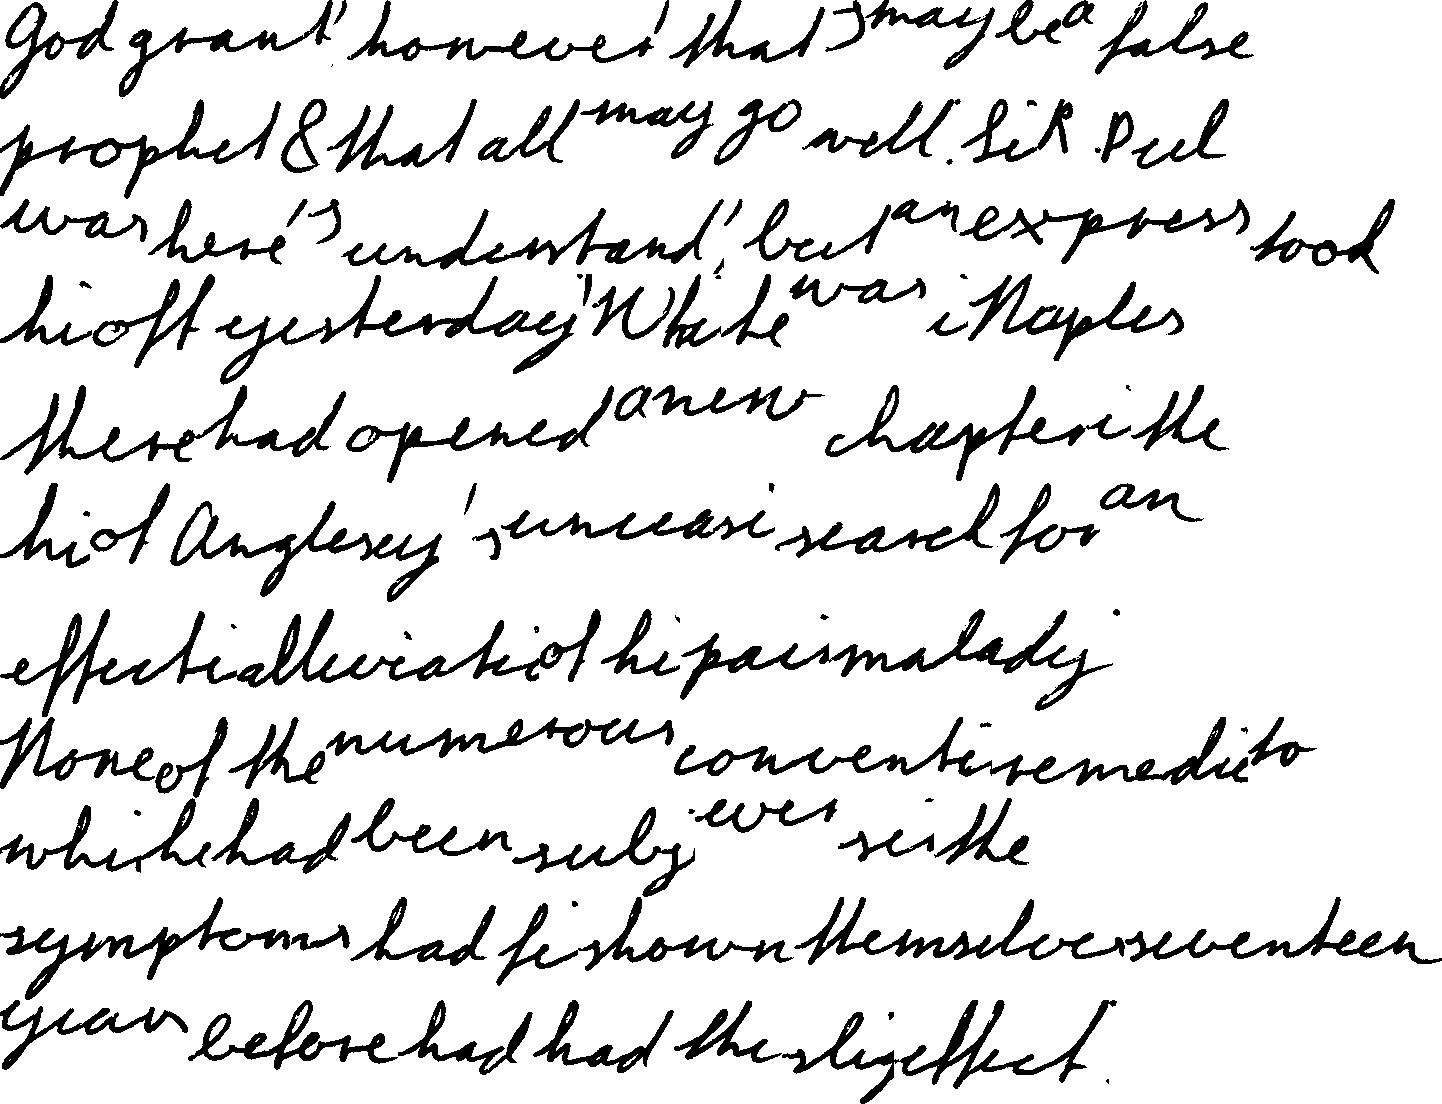 God grant' however' that I may be a false
prophet & that all may go well. Sir R. Peel
was here' I understand', but an express took
hi off yesterday' While was i Naples
there had opened a new chapter i the
hi of Anglesey's unceasi search for an
effecti alleviati of hi pai malady
None of the numerous conventi remedie to
whi he had been subj ever si the
symptoms had fi shown themselves seventeen
years before had had the slig effect.